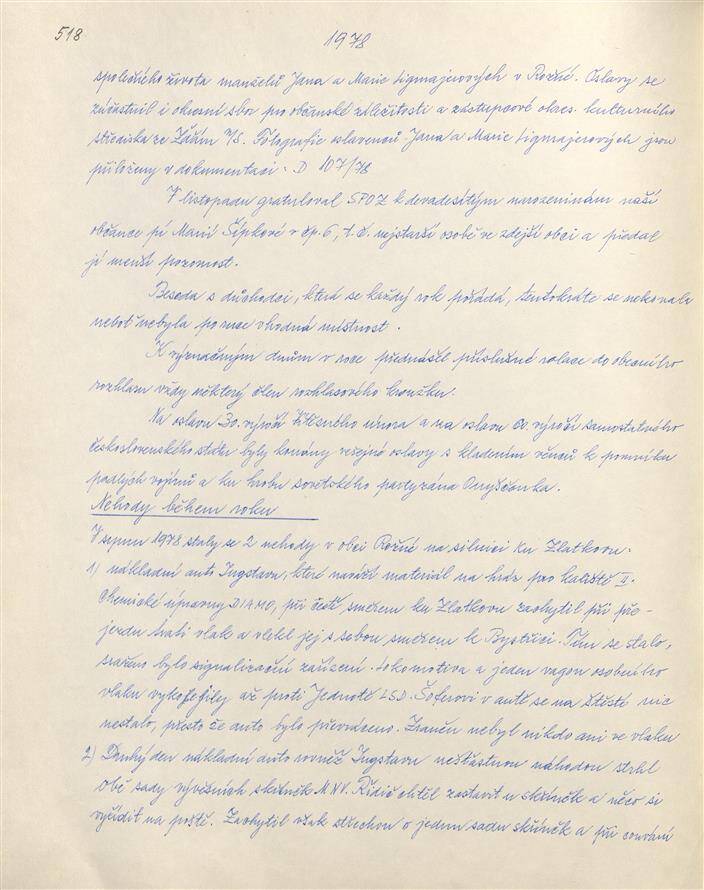 518
1978
společného života manželů Jana a Marie Sigmajerových v Rožné. Oslavy se
zúčastnil i okresní sbor pro občanské záležitosti a zástupcové okres. kulturního
střediska ze Žďáru n/S. Fotografie oslavenců Jana a Marie Sigmajerových jsou
přiloženy v dokumentaci. D 107/78
V listopadu gratuloval SPOZ k devadesátým narozeninám naší
občance pí Marii Šípkové v čp. 6, t.č. nejstarší osobě ve zdejší obci a předal
jí menší pozornost.
Beseda s důchodci, která se každý rok pořádá, tentokráte se nekonala
neboť nebyla po ruce vhodná místnost.
K význačným dnům v roce přednášel příslušné relace do obecního
rozhlasu vždy některý člen rozhlasového kroužku.
Na oslavu 30. výročí Vítězného února a na oslavu 60. výročí samostatného
československého státu byly konány veřejné oslavy s kladením věnců k pomníku
padlých vojínů a ku hrobu sovětského partyzána Onyščenka.
Nehody během roku
V srpnu 1978 staly se 2 nehody v obci Rožné na silnici ku Zlatkovu.
1) nákladní auto Ingstavu, které naváží materiál na hráz pro kaliště II.
Chemické úpravny DIAMO, při cestě směrem ku Zlatkovu zachytil při pře-
jezdu trati vlak a vlekl jej s sebou směrem k Bystřici. Tím se stalo,
sraženo bylo signalizační zařízení. Lokomotiva a jeden vagon osobního
vlaku vykolejily až proti Jednotě LSD. Šoférovi v autě se na štěstí nic
nestalo, přesto že auto bylo převráceno. Zraněn nebyl nikdo ani ve vlaku
2) Druhý den nákladní auto rovněž Ingstavu nešťastnou náhodou strhl
obě sady vývěsních skříněk MNV. Řidič chtěl zastavit u skříněk a něco si
vyřídit na poště. Zachytil však střechou o jednu sadu skříněk a při couvání